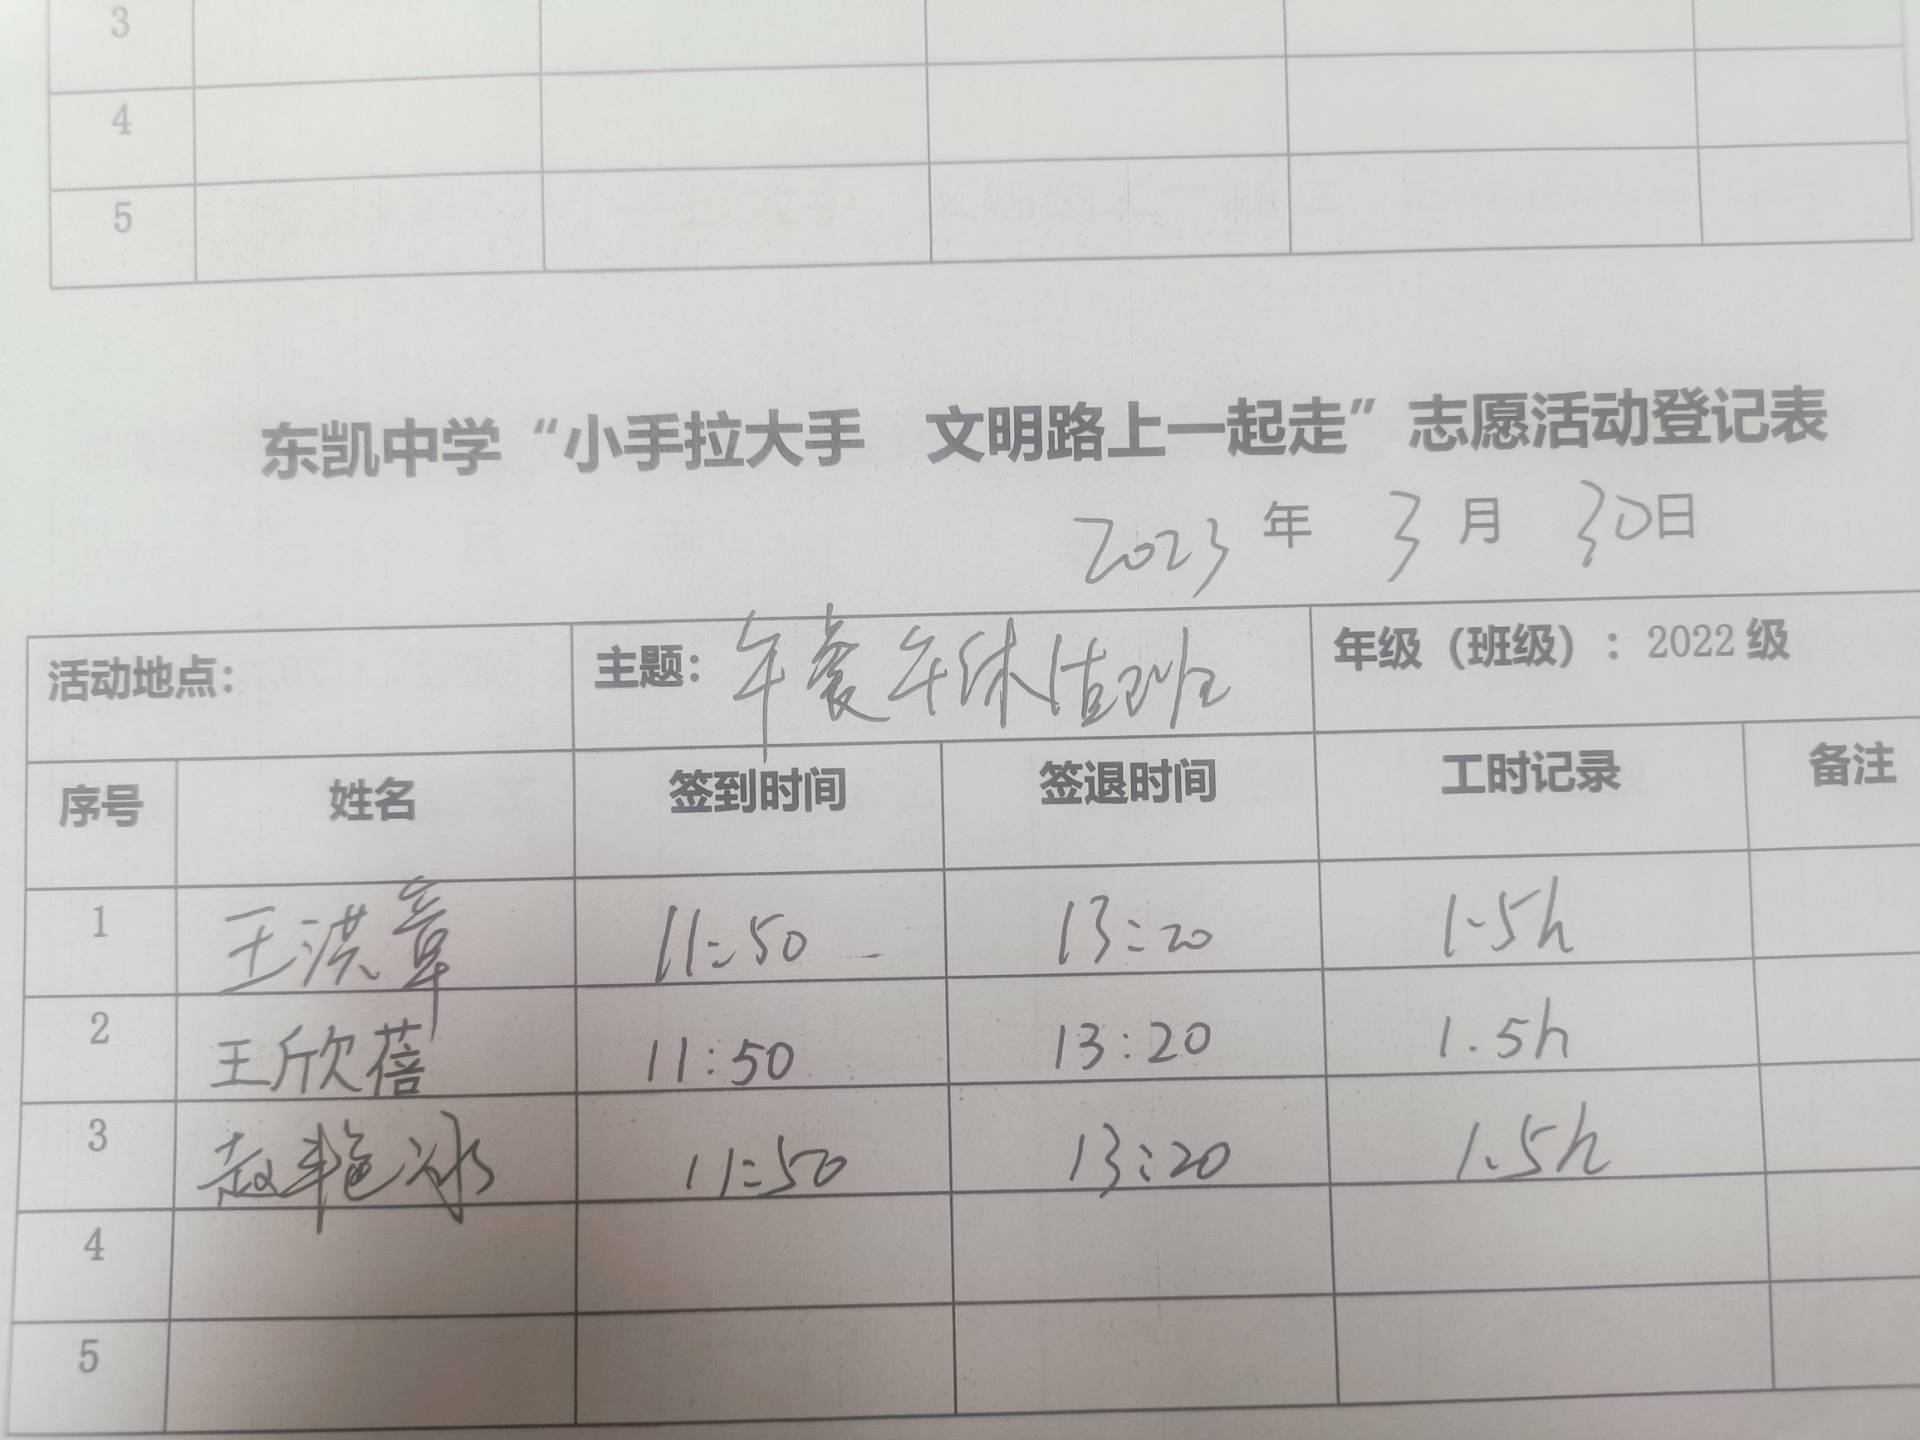 3
4
5
东凯中学“小手拉大手 文明路上一起走”志愿活动登记表
2023 年 3 月 30日
活动地点： 主题：午餐午休值班 年级（班级）：2022 级
序号 姓名 签到时间 签退时间 工时记录 备注
1 王洪章 11:50 13:20 1.5h
2 王欣蓓 11:50 13:20 1.5h
3 赵艳冰 11:50 13:20 1.5h
4
5